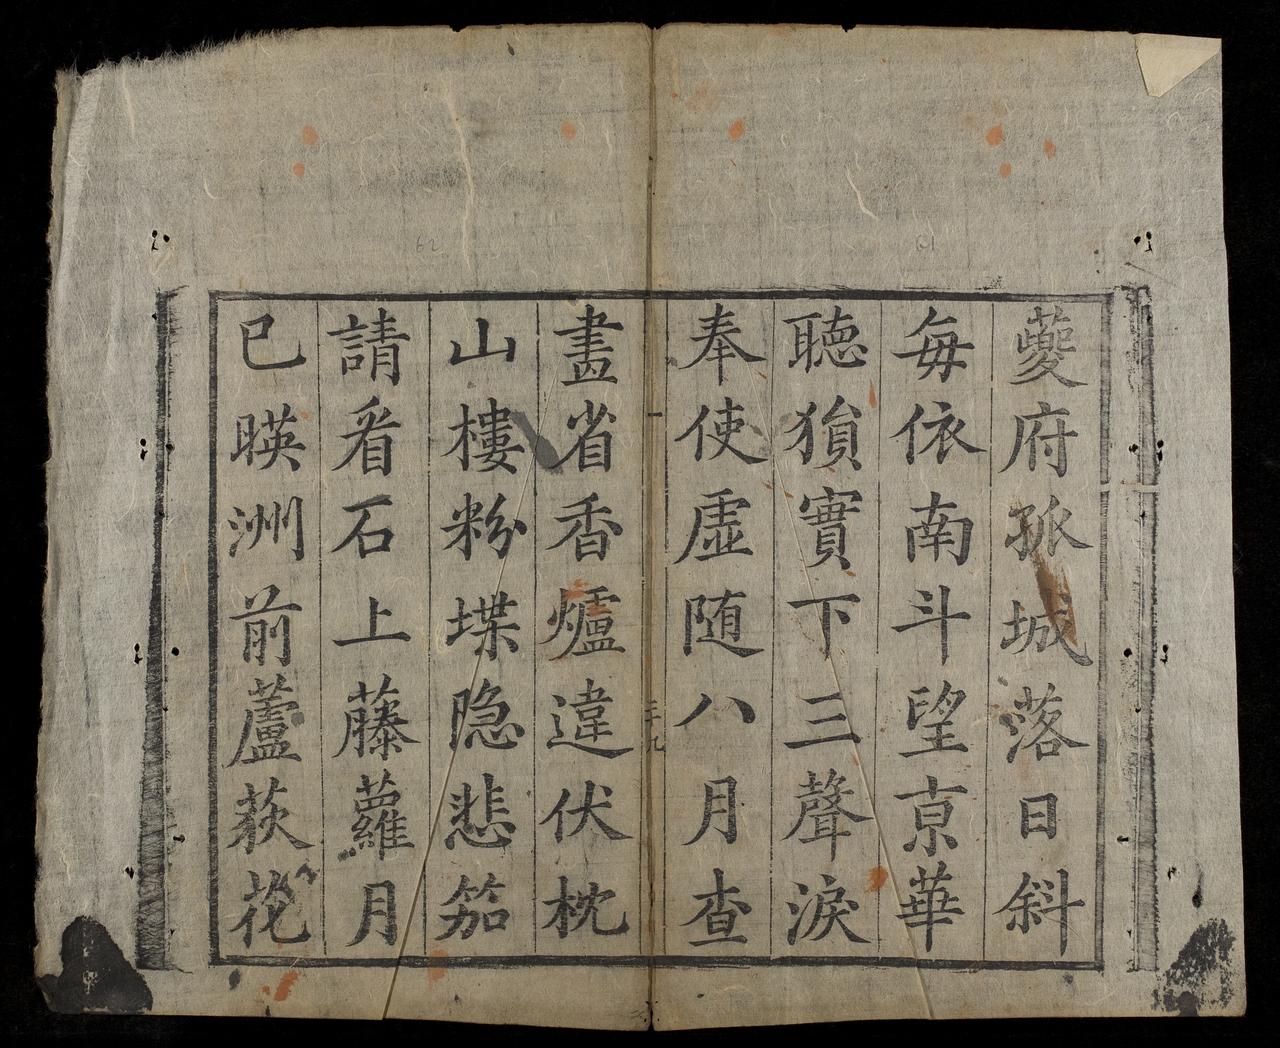 夔府孤城落日斜
每依南斗望京華
聽猿實下三聲淚
奉使虛随八月查
畫省香爐違伏枕
山樓粉堞隐悲笳
請看石上藤蘿月
已暎洲前蘆荻花